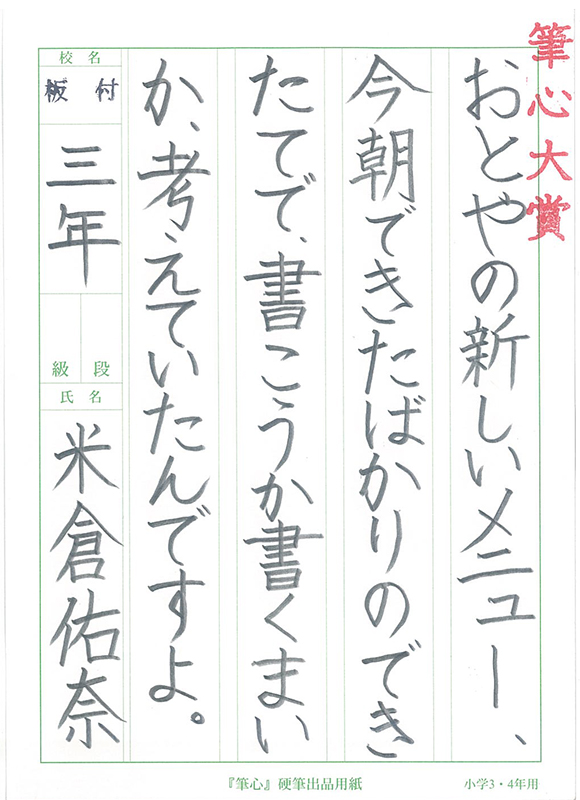 筆心大賞
おとやの新しいメニュー、
今朝できたばかりのでき
たてで、書こうか書くまい
か、考えていたんですよ。
校名
板付
三年
段
級
氏名
米倉佑奈
『筆心』硬筆出品用紙
小学3・4年用